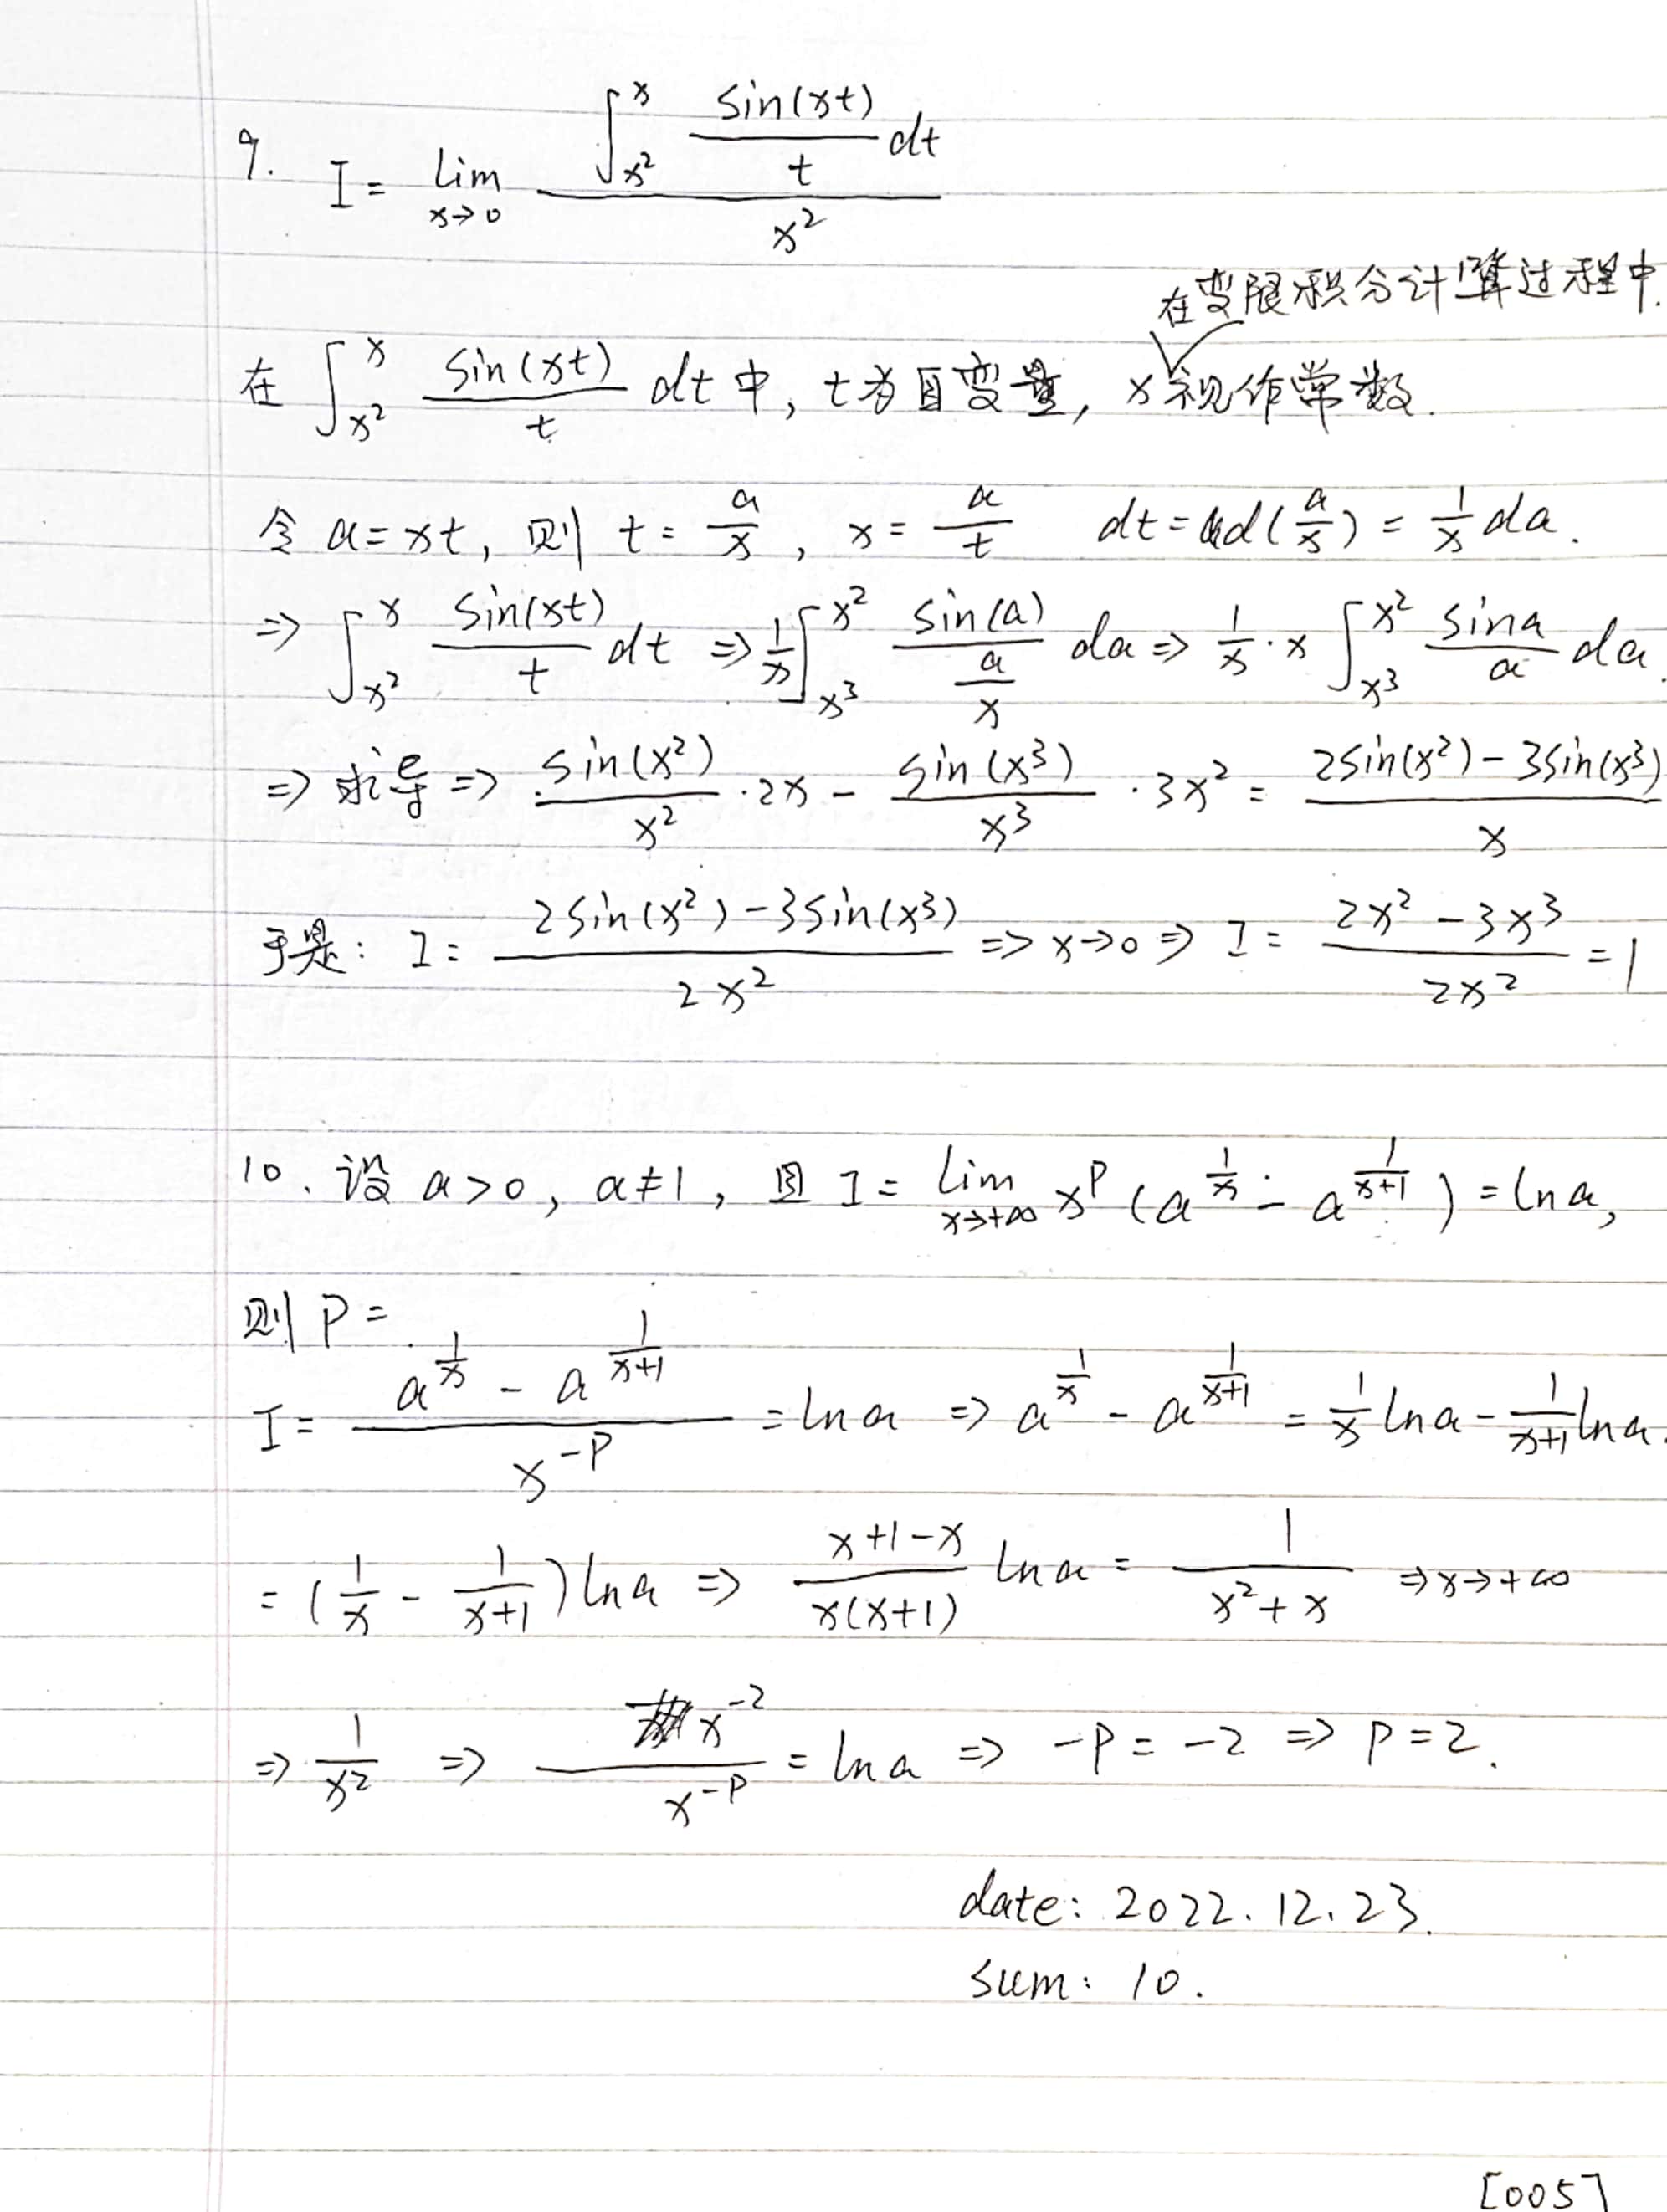 9. I = lim_{x→0} \frac{∫_{x²}^{x} \frac{sin(xt)}{t} dt}{x²}
在变限积分计算过程中.
在 ∫_{x²}^{x} \frac{sin(xt)}{t} dt 中, t为自变量, x视作常数.
令 a = xt, 则 t = \frac{a}{x}, x = \frac{a}{t} dt = d(\frac{a}{x}) = \frac{1}{x} da.
⇒ ∫_{x²}^{x} \frac{sin(xt)}{t} dt ⇒ \frac{1}{x} ∫_{x³}^{x²} \frac{sin(a)}{\frac{a}{x}} da ⇒ \frac{1}{x} · x ∫_{x³}^{x²} \frac{sina}{a} da.
⇒ 求导 ⇒ \frac{sin(x²)}{x²} · 2x - \frac{sin(x³)}{x³} · 3x² = \frac{2sin(x²) - 3sin(x³)}{x}
于是: I = \frac{2sin(x²) - 3sin(x³)}{2x²} ⇒ x→0 ⇒ I = \frac{2x² - 3x³}{2x²} = 1
10. 设 a>0, a≠1, 且 I = lim_{x→+∞} x^p (a^{\frac{1}{x}} - a^{\frac{1}{x+1}}) = ln a,
则 P =
I = \frac{a^{\frac{1}{x}} - a^{\frac{1}{x+1}}}{x^{-p}} = ln a ⇒ a^{\frac{1}{x}} - a^{\frac{1}{x+1}} = \frac{1}{x} ln a - \frac{1}{x+1} ln a.
= (\frac{1}{x} - \frac{1}{x+1}) ln a ⇒ \frac{x+1-x}{x(x+1)} ln a = \frac{1}{x²+x} ⇒ x→+∞
⇒ \frac{1}{x²} ⇒ \frac{x^{-2}}{x^{-p}} = ln a ⇒ -p = -2 ⇒ p = 2.
date: 2022.12.23.
sum: 10.
[005]